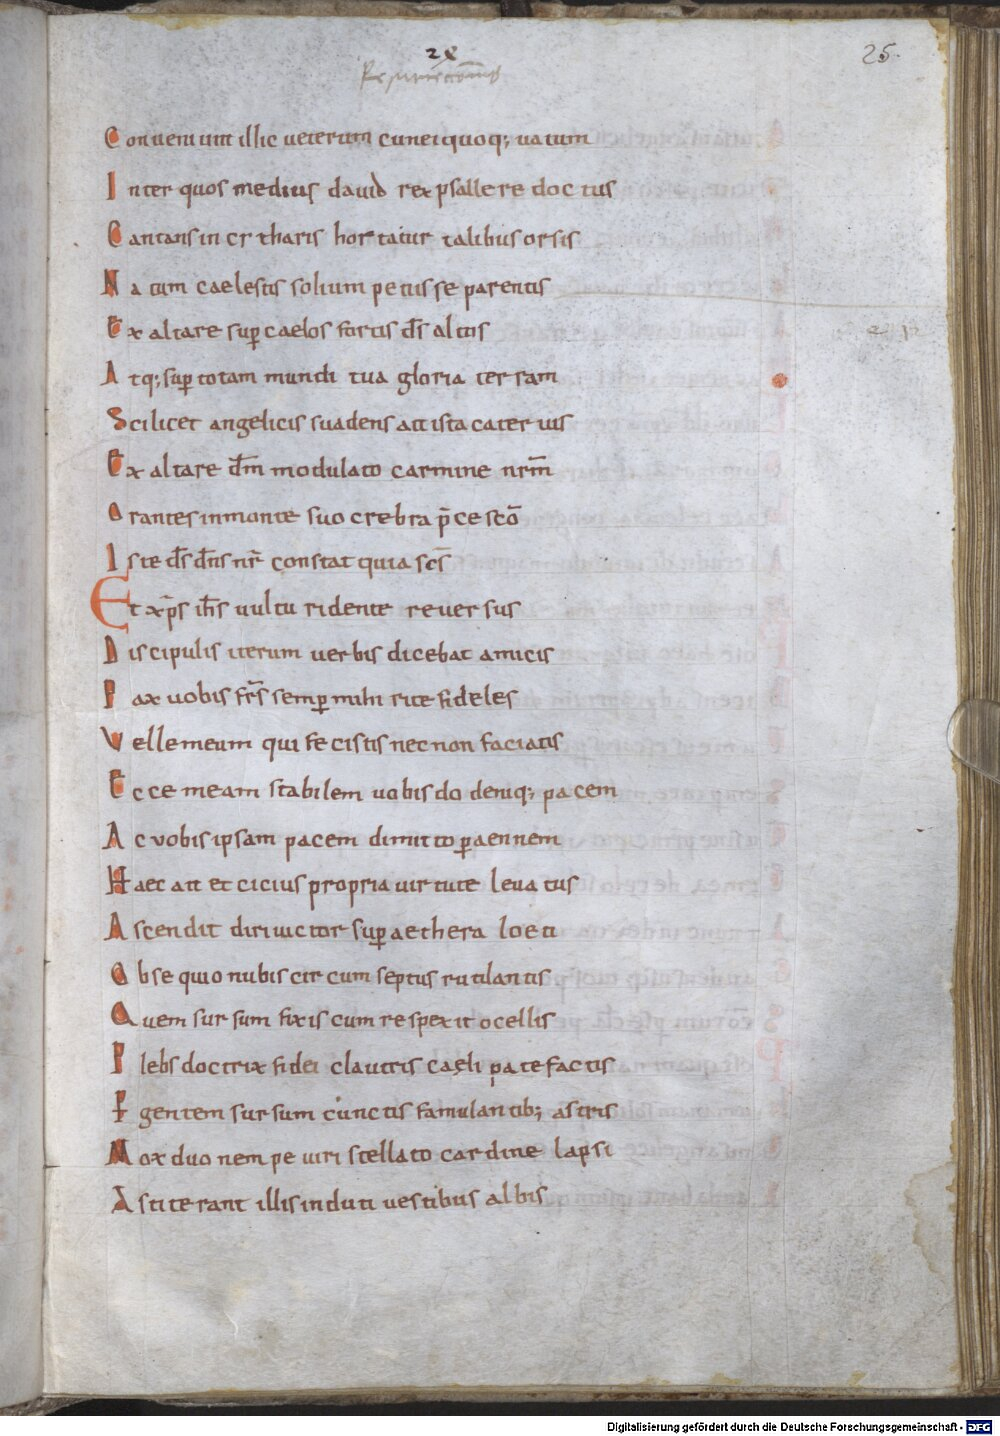 28
25.
Conueniunt illic ueterum cunei quoq; uatum
Inter quos medius dauid rex psallere doctus
Cantans in cytharis hortatur talibus orsis
Natum caelestis solium petiisse parentis
Exaltare sup̄ caelos fortis d̄s altus
Atq; sup̄ totam mundi tua gloria terram
Scilicet angelicis suadens att ista cateruis
Exaltare d̄m modulato carmine nr̄m
Orantes in monte suo crebra p̄ce sc̄o
Iste d̄s dn̄s nr̄ constat quia sc̄s
Et xp̄s ih̄s uultu ridente reuersus
Discipulis iterum uerbis dicebat amicis
Pax uobis fr̄s semp̄ mihi rite fideles
Velle meum qui fecistis nec non faciatis
Ecce meam stabilem uobis do deniq; pacem
Ac vobis ipsam pacem dimitto p̄aennem
Haec att et cicius propria uirtute leuatus
Ascendit diri uictor sup̄ aethera loeti
Obsequio nubis circumseptus rutilantis
Quem sursum fixis cum respexit ocellis
Plebs doctrix fidei claustris caeli patefactis
Ī gentem sursum cunctis famulantib; astris
Mox duo nempe uiri stellato cardine lapsi
Astiterant illis induti uestibus albis
Digitalisierung gefördert durch die Deutsche Forschungsgemeinschaft - DFG